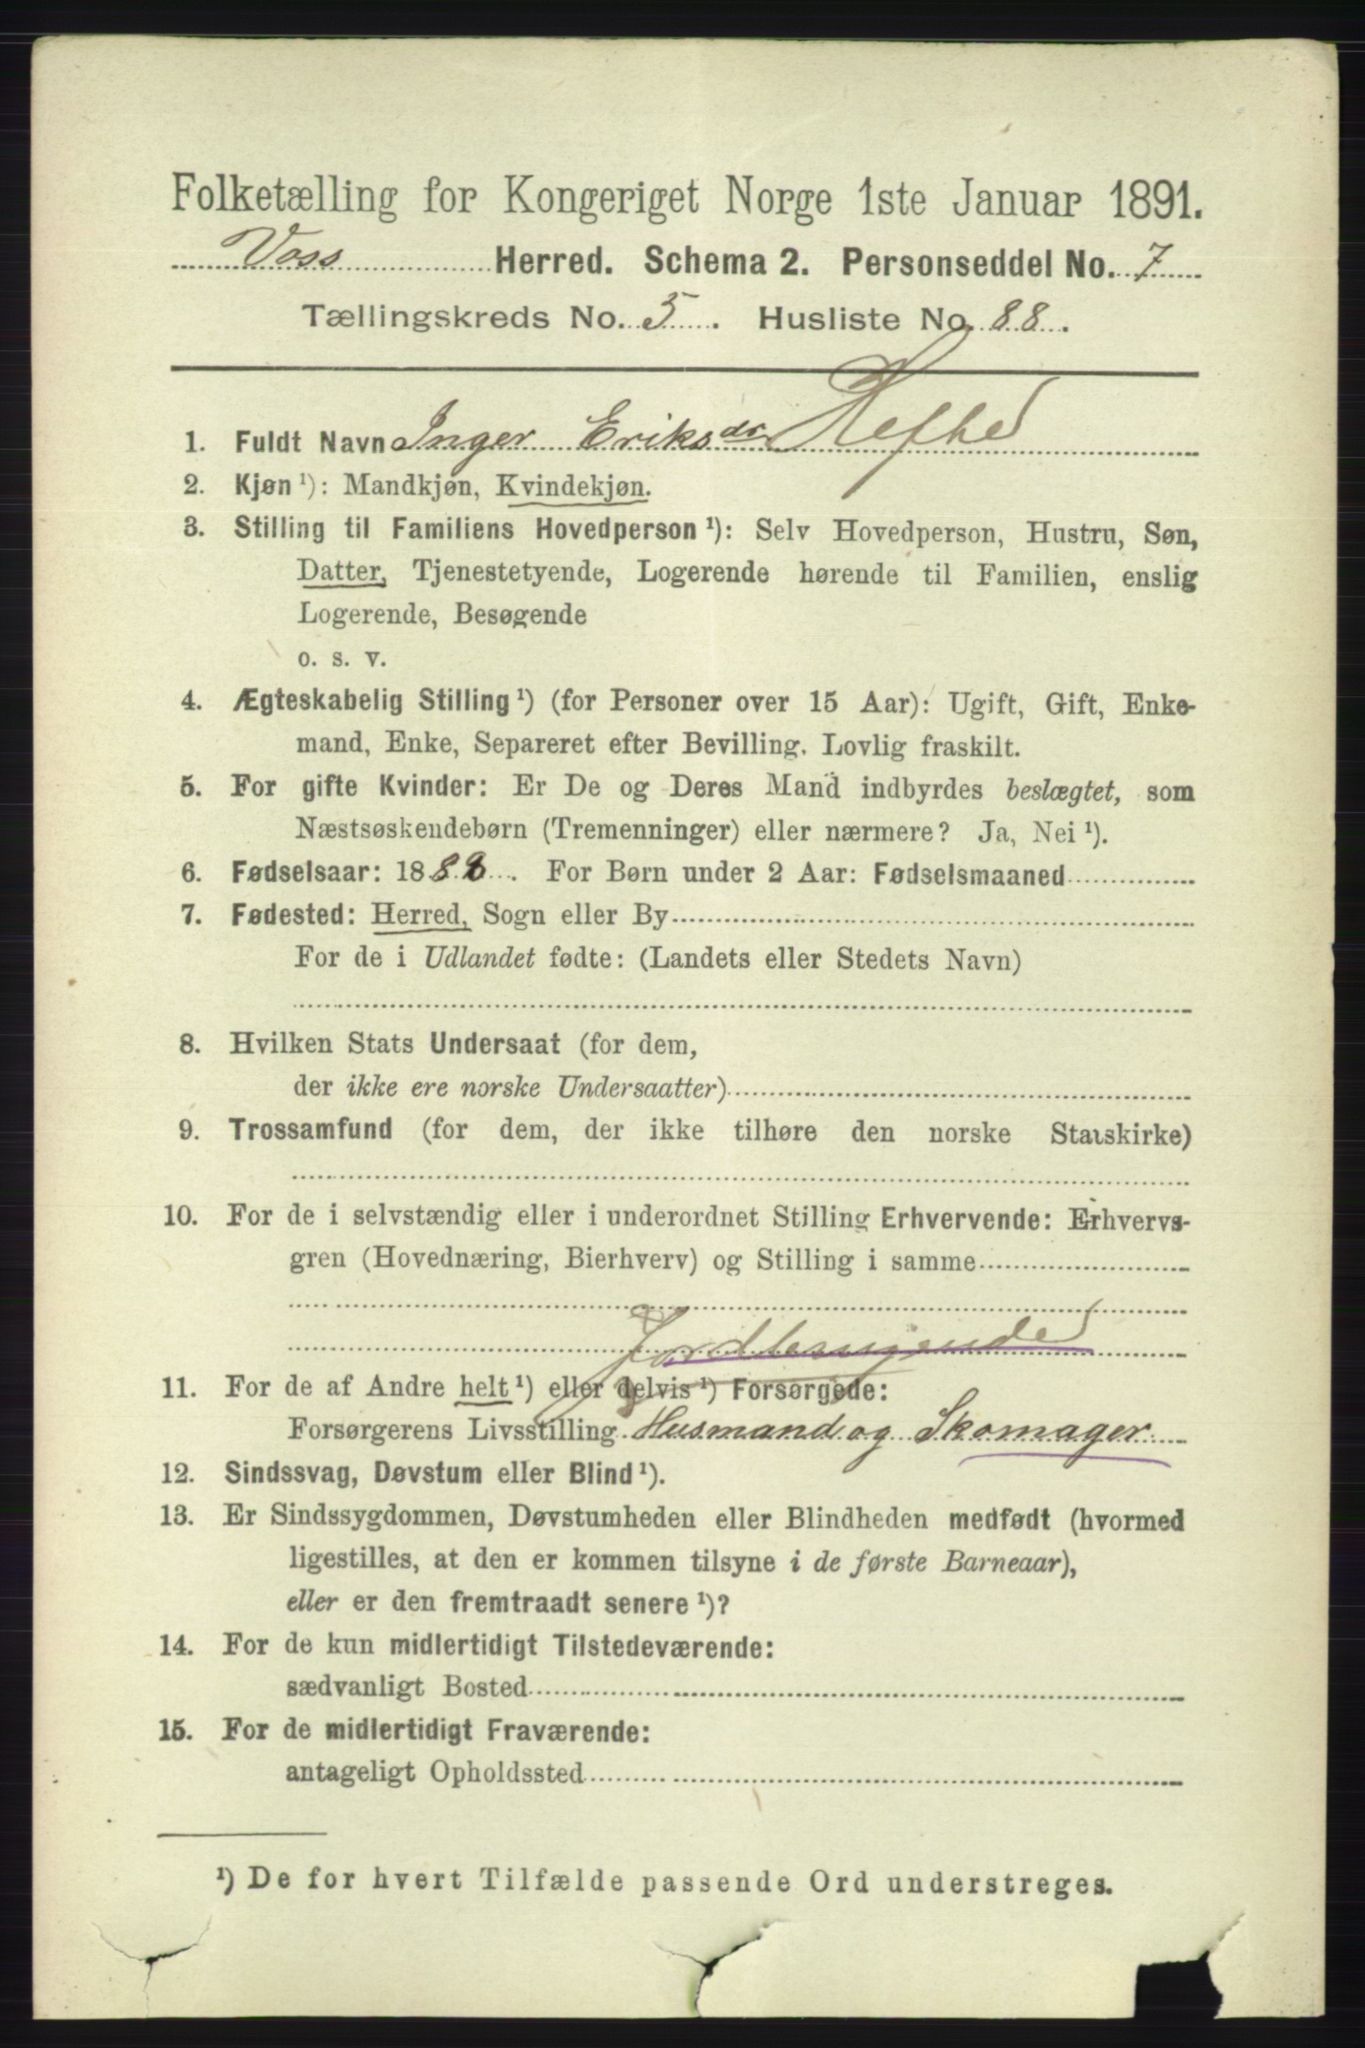 Folketælling for Kongeriget Norge 1ste Januar 1891.
Voss Herred. Schema 2. Personseddel No. 7
Tællingskreds No. 5. Husliste No. 88.
1. Fuldt Navn Inger Eriksdr Refhe
2. Kjøn ¹): Mandkjøn, Kvindekjøn.
3. Stilling til Familiens Hovedperson ¹): Selv Hovedperson, Hustru, Søn,
Datter, Tjenestetyende, Logerende hørende til Familien, enslig
Logerende, Besøgende
o. s. v.
4. Ægteskabelig Stilling ¹) (for Personer over 15 Aar): Ugift, Gift, Enke-
mand, Enke, Separeret efter Bevilling. Lovlig fraskilt.
5. For gifte Kvinder: Er De og Deres Mand indbyrdes beslægtet, som
Næstsøskendebørn (Tremenninger) eller nærmere? Ja, Nei ¹).
6. Fødselsaar: 188. For Børn under 2 Aar: Fødselsmaaned
7. Fødested: Herred, Sogn eller By
For de i Udlandet fødte: (Landets eller Stedets Navn)
8. Hvilken Stats Undersaat (for dem,
der ikke ere norske Undersaatter)
9. Trossamfund (for dem, der ikke tilhøre den norske Statskirke)
10. For de i selvstændig eller i underordnet Stilling Erhvervende: Erhvervs-
gren (Hovednæring, Bierhverv) og Stilling i samme
Jordbrugende
11. For de af Andre helt ¹) eller delvis ¹) Forsørgede:
Forsørgerens Livsstilling Husmand og Skomager
12. Sindssvag, Døvstum eller Blind ¹).
13. Er Sindssygdommen, Døvstumheden eller Blindheden medfødt (hvormed
ligestilles, at den er kommen tilsyne i de første Barneaar),
eller er den fremtraadt senere ¹)?
14. For de kun midlertidigt Tilstedeværende:
sædvanligt Bosted
15. For de midlertidigt Fraværende:
antageligt Opholdssted
¹) De for hvert Tilfælde passende Ord understreges.